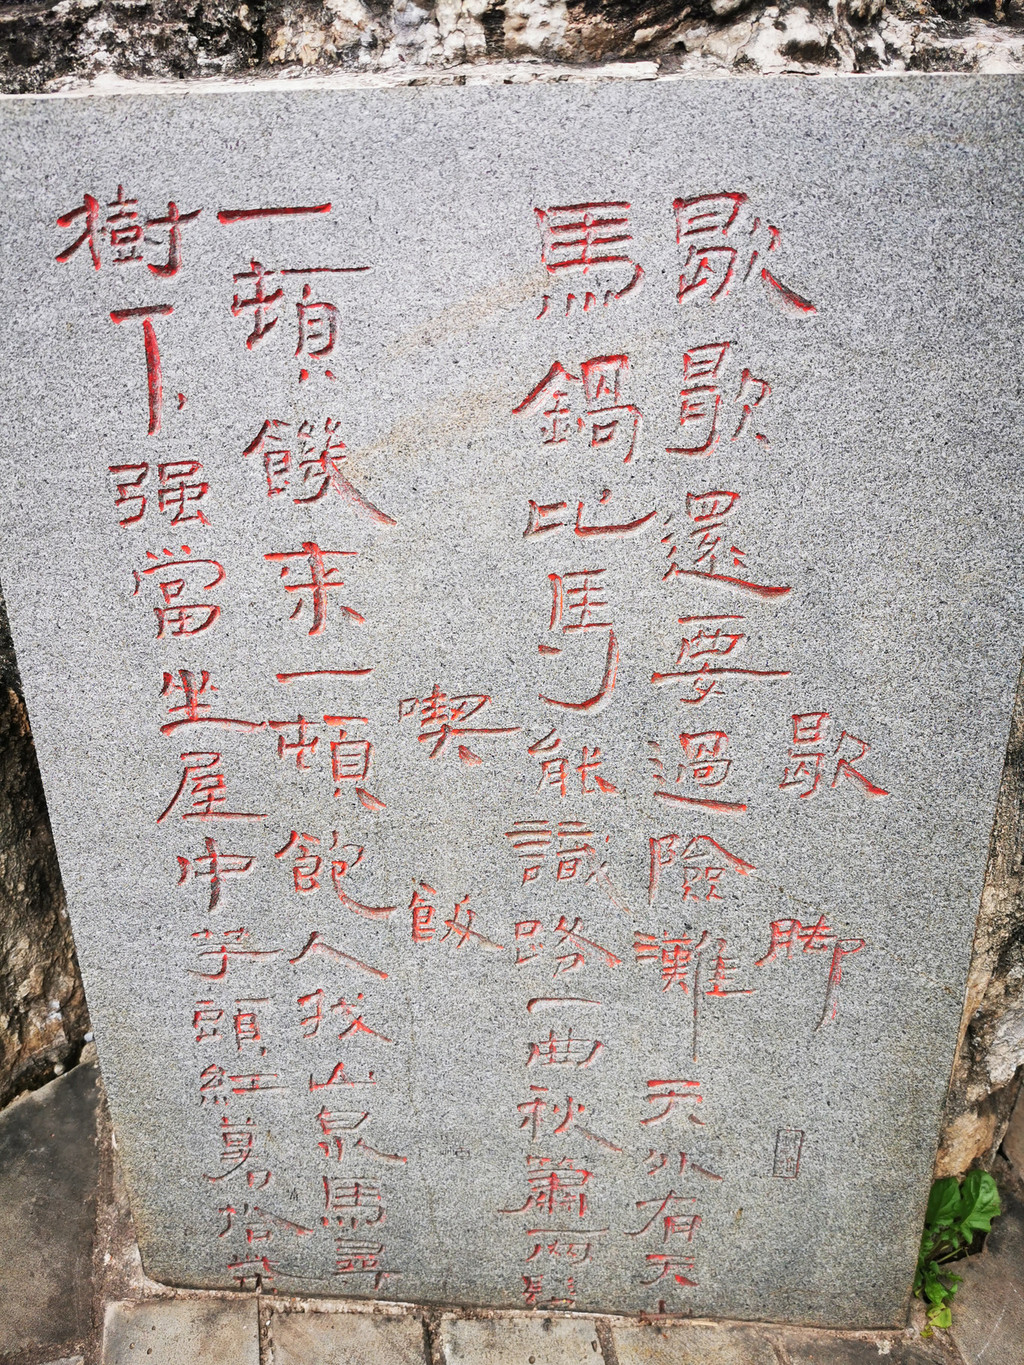 歇脚
歇歇還要過險灘天外有天
馬鍋比馬能識路一曲秋蕭兩
喫飯
一頓饑來一頓飽人找山泉馬尋
樹下强當坐屋中芋頭紅拾